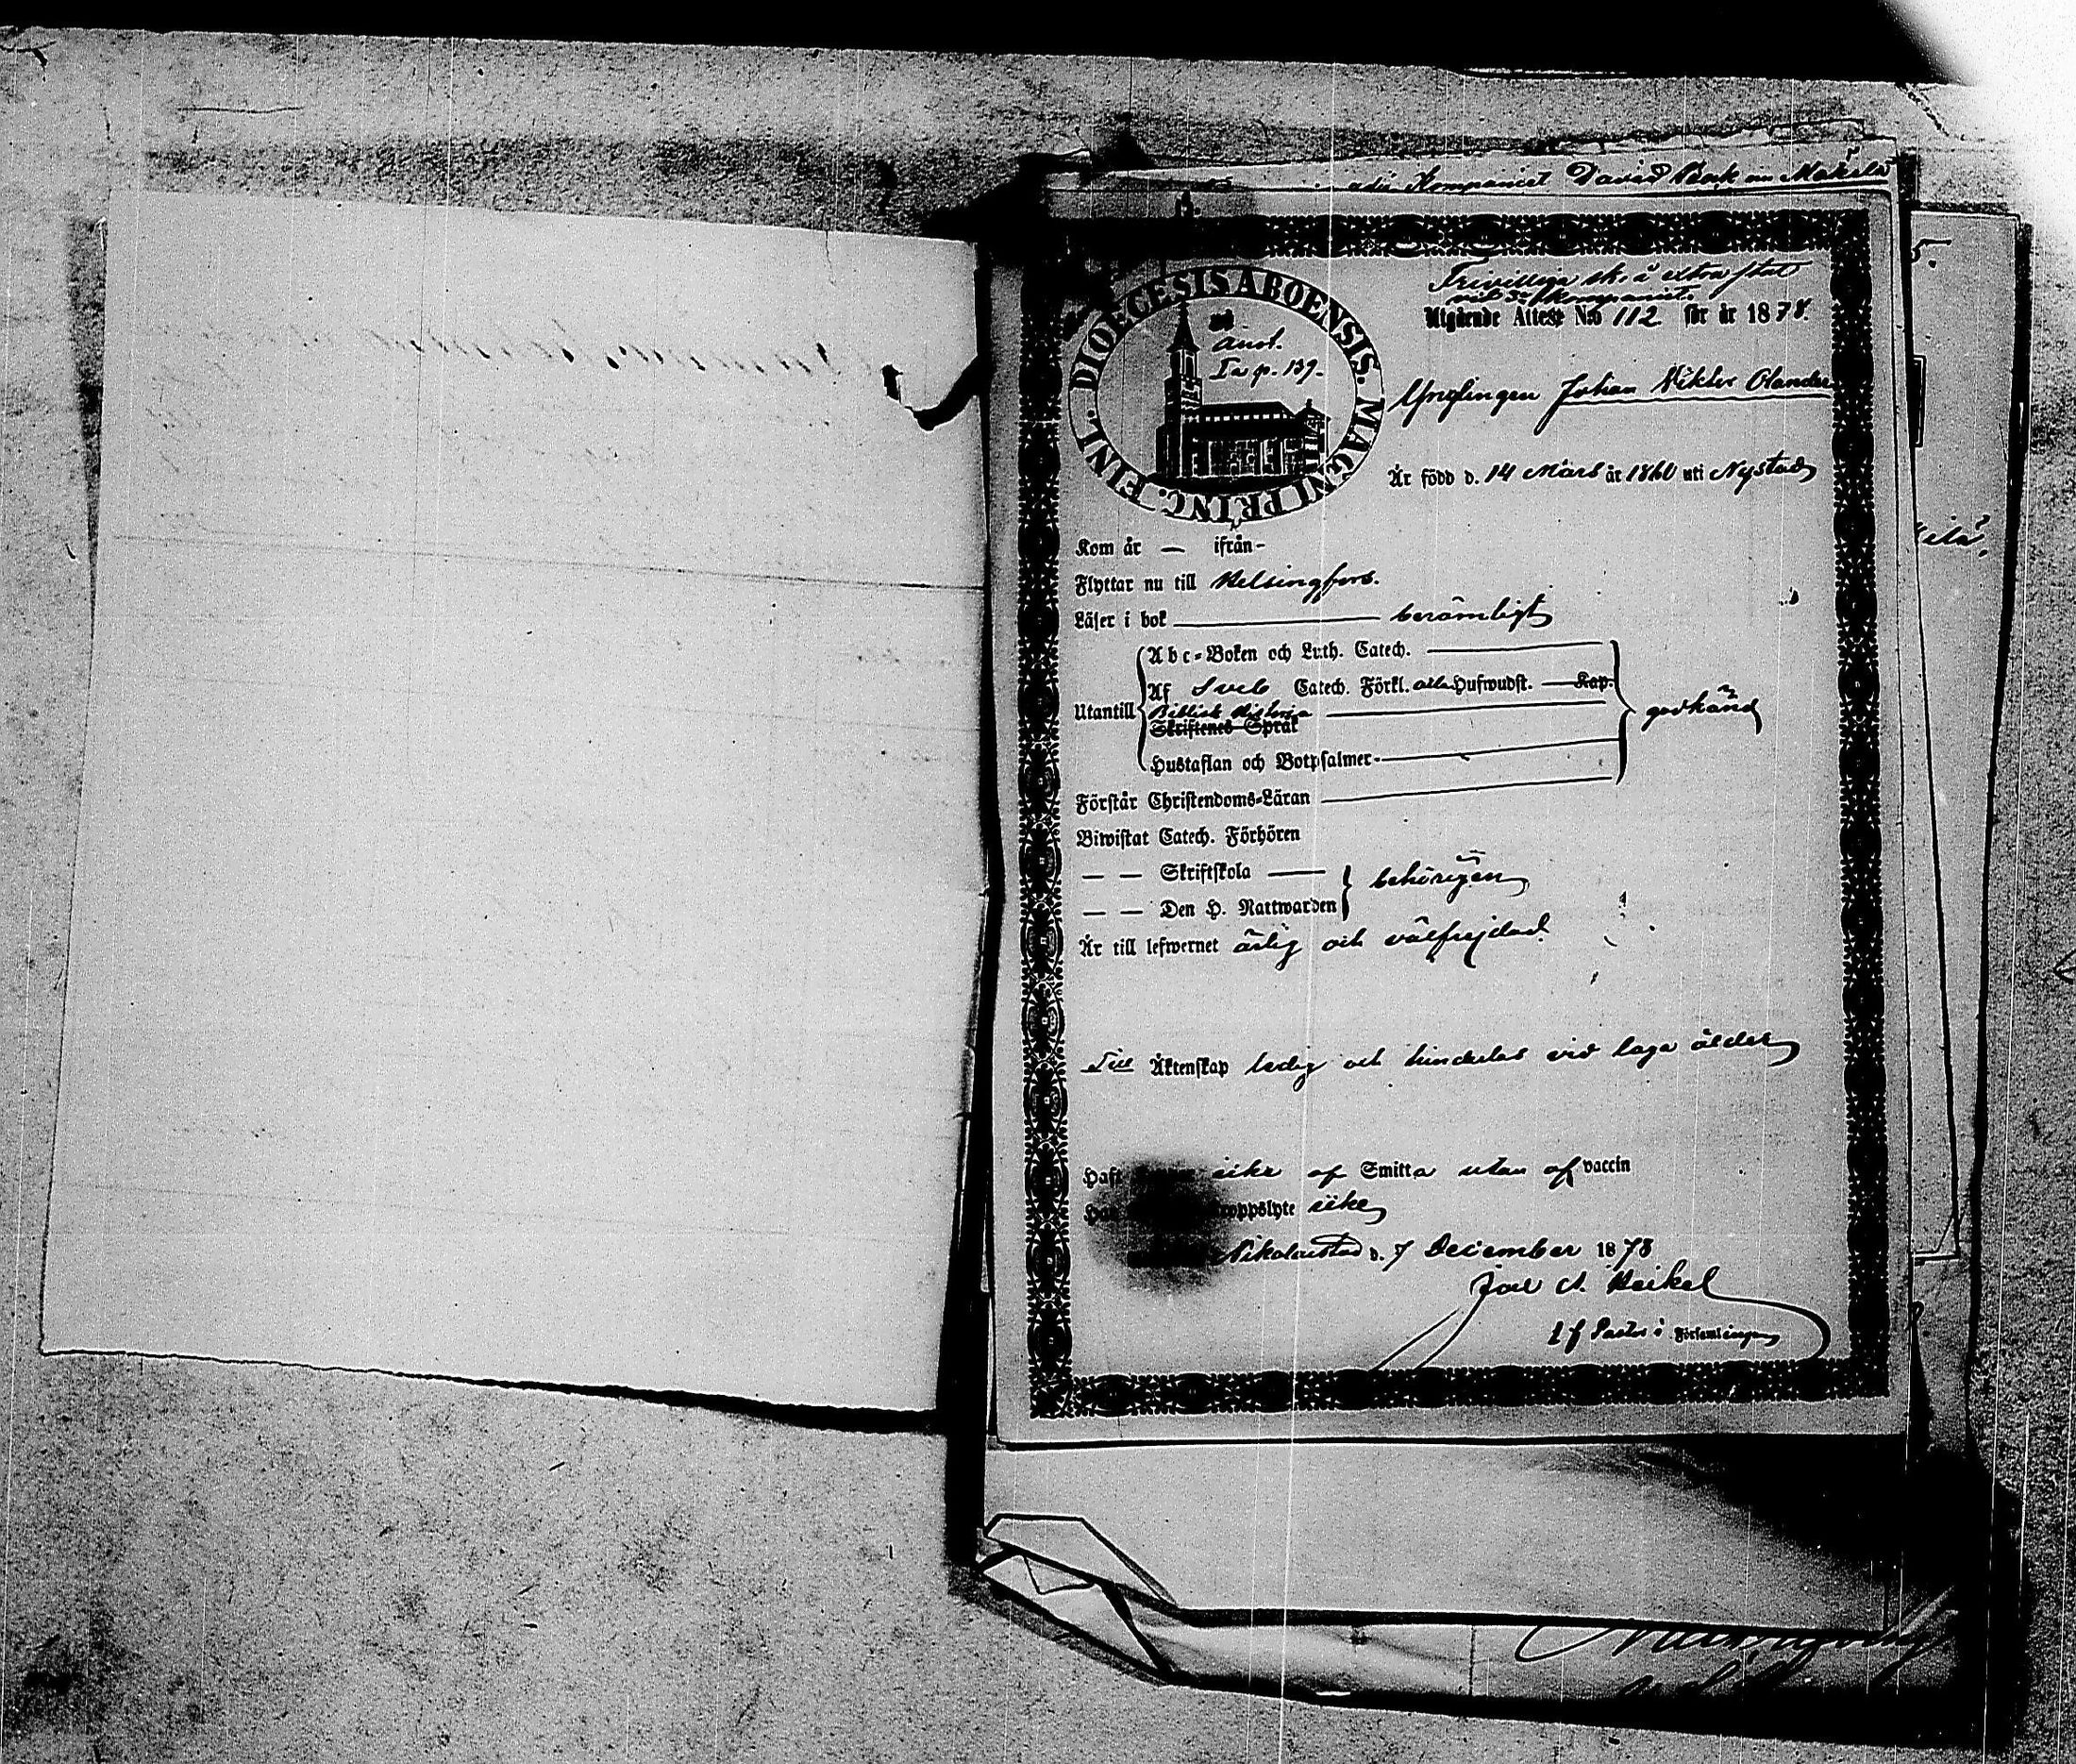 Kompaniet David Mäkelä
Frivillig sk. i extra stat
vid 3e kompaniet.
Utgående Attest N:o 112 för år 1878.
DIOECESIS ABOENSIS. MAGNI PRINC. FINL.
anot.
Ia p. 139.
Ynglingen Johan Viktor Olander
Är född d. 14 Mars år 1860 uti Nystad
Kom år — ifrån -
Flyttar nu till Helsingfors.
Läser i bok berömligt
Abc-Boken och Luth. Catech.
Af Sveb Catech. Förkl. alla Hufwudst. Kap.
Utantill Biblisk Historia
Skriftenes Språk
godkänd
Hustaflan och Botpsalmer-
Förstår Christendoms-Läran
Biwistat Catech. Förhören
— — Skriftskola behörigen
— — Den H. Nattwarden
Är till lefwernet ärlig och välfrejdad.
Till Äktenskap ledig och hinderlös vid laga ålder
Haft icke af Smitta utan af vaccin
Har kroppslyte icke
Nikolaistad d. 7 December 1878
Joel A. Heikel
t f Pastor i Församlingen